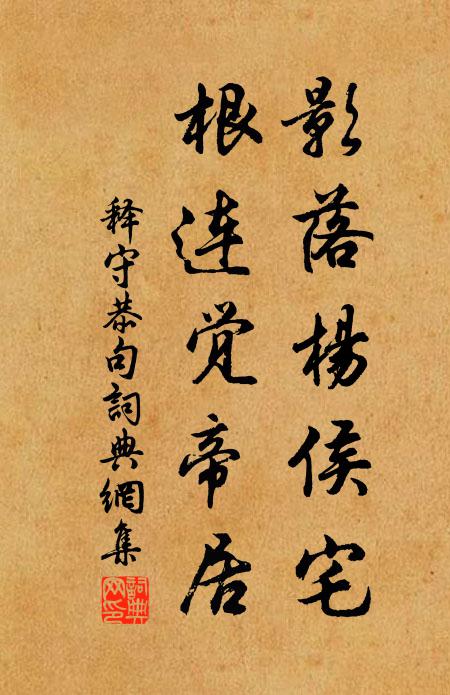 影落楊侯宅
根连觉帝居
释守恭句詞典網集
詞典网印